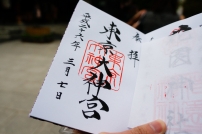 奉拝
東京大神宮
平成二十六年
三月七日